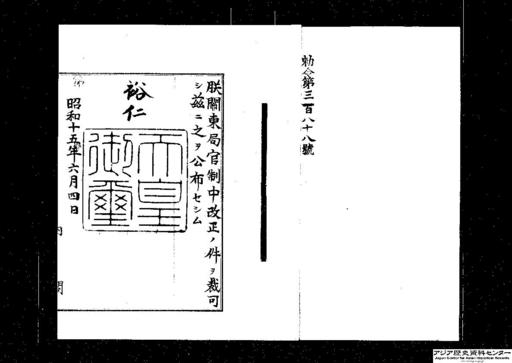 勅令第三百八十八號
朕關東局官制中改正ノ件ヲ裁可
シ茲ニ之ヲ公布セシム
裕仁
天皇
御璽
昭和十五年六月四日
内閣
アジア歴史資料センター
Japan Center for Asian Historical Records